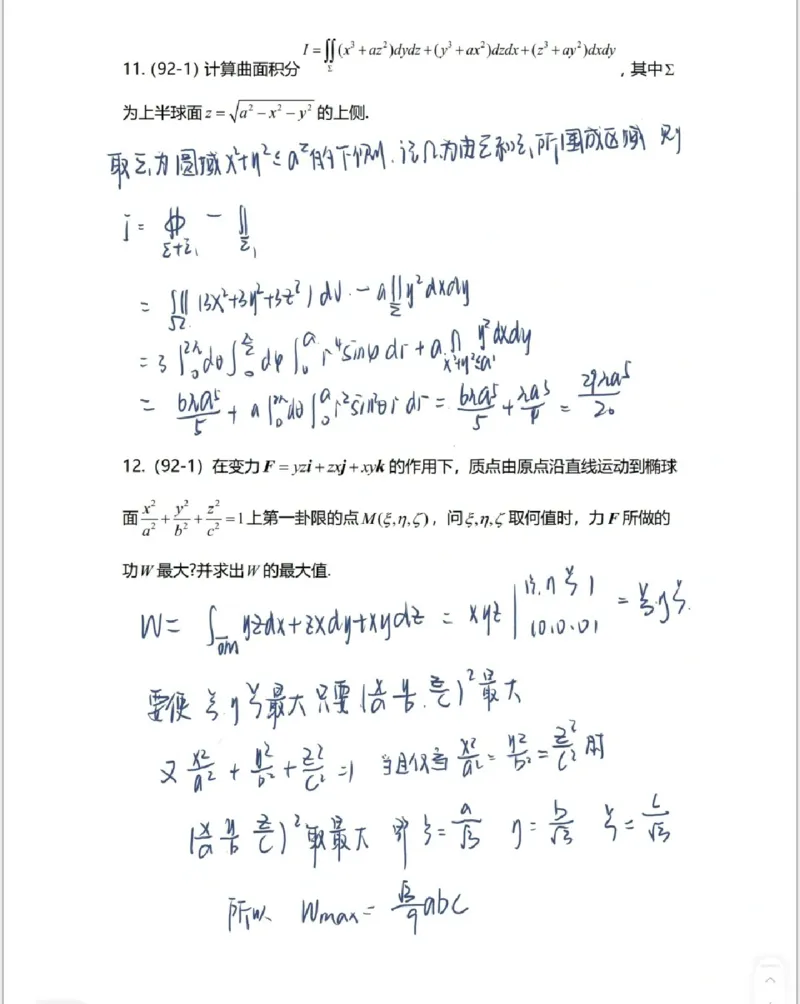 I = ∬_Σ (x³ + az²)dydz + (y³ + ax²)dzdx + (z³ + ay²)dxdy
11. (92-1) 计算曲面积分 ，其中Σ
为上半球面 z = √(a² − x² − y²) 的上侧.
取Σ₁为圆域 x²+y²≤a²的下侧. 记Ω为由Σ和Σ₁所围成区域 则
I = ∯_{Σ+Σ₁} − ∬_{Σ₁}
= ∭_Ω (3x²+3y²+3z²) dv. − a∬_Σ y² dxdy
= 3∫₀^{2π} dθ ∫₀^{π/2} dφ ∫₀^a r⁴sinφ dr + a∬_{x²+y²≤a²} y² dxdy
= 6πa⁵/5 + a∫₀^{2π} dθ ∫₀^a r² sin²θ r dr = 6πa⁵/5 + πa⁵/4 = 29πa⁵/20
12. (92-1) 在变力 F = yzi + zxj + xyk 的作用下，质点由原点沿直线运动到椭球
面 x²/a² + y²/b² + z²/c² = 1 上第一卦限的点 M(ξ,η,ζ)，问 ξ,η,ζ 取何值时，力 F 所做的
功 W 最大?并求出 W 的最大值.
W = ∫_{OM} yzdx+zxdy+xydz = xyz |_{(0.0.0)}^{(ξ.η.ζ)} = ξ.η.ζ.
要使 ξ η ζ 最大 只要 (x/a · y/b · z/c)² 最大
又 x²/a² + y²/b² + z²/c² = 1 当且仅当 x²/a² = y²/b² = z²/c² 时
(x/a y/b z/c)² 取最大 即 ξ = a/√3 η = b/√3 ζ = c/√3
所以 Wmax = √3/9 abc